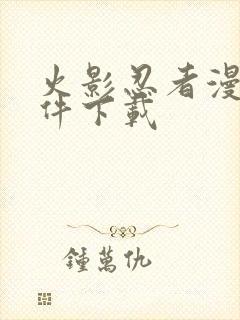 火影忍者漫
件下載
鍾萬仇